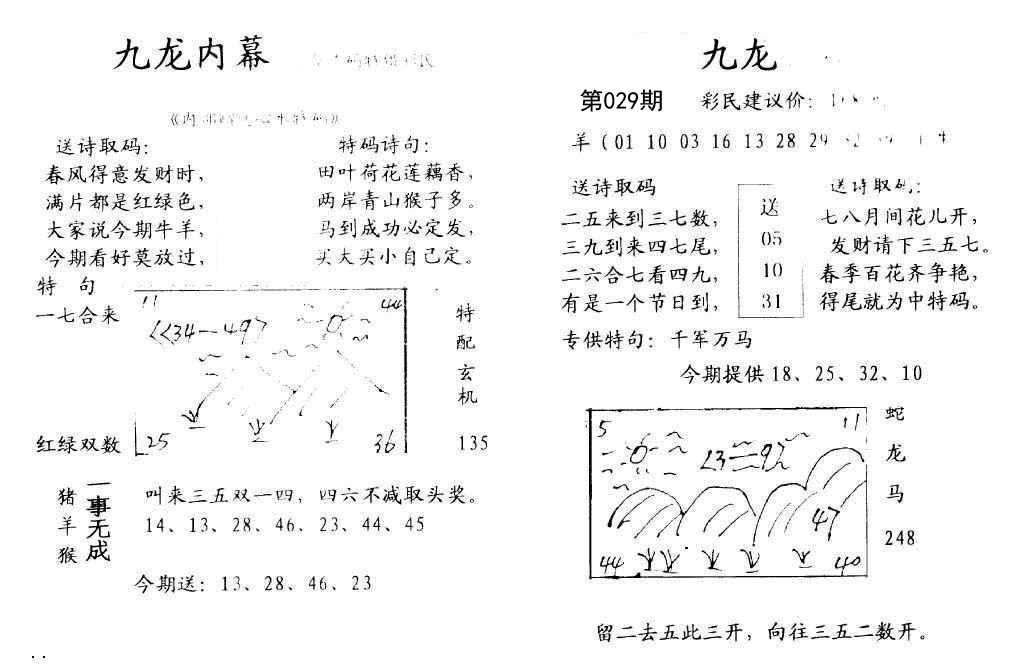 九龙内幕
送诗取码：
春风得意发财时，
满片都是红绿色，
大家说今期牛羊，
今期看好莫放过，
特码诗句：
田叶荷花莲藕香，
两岸青山猴子多。
马到成功必定发，
买大买小自己定。
特 句
一七合来
红绿双数
11
44
34—49
25
36
特配玄机
135
猪
羊
猴
一事无成
叫来三五双一四，四六不减取头奖。
14、13、28、46、23、44、45
今期送：13、28、46、23
九龙
第029期
彩民建议价：
羊（01 10 03 16 13 28 29
送诗取码
二五来到三七数，
三九到来四七尾，
二六合七看四九，
有是一个节日到，
送
05
10
31
送诗取码：
七八月间花儿开，
发财请下三五七。
春季百花齐争艳，
得尾就为中特码。
专供特句：千军万马
今期提供 18、25、32、10
5
11
47
44
40
蛇
龙
马
248
留二去五此三开，向往三五二数开。